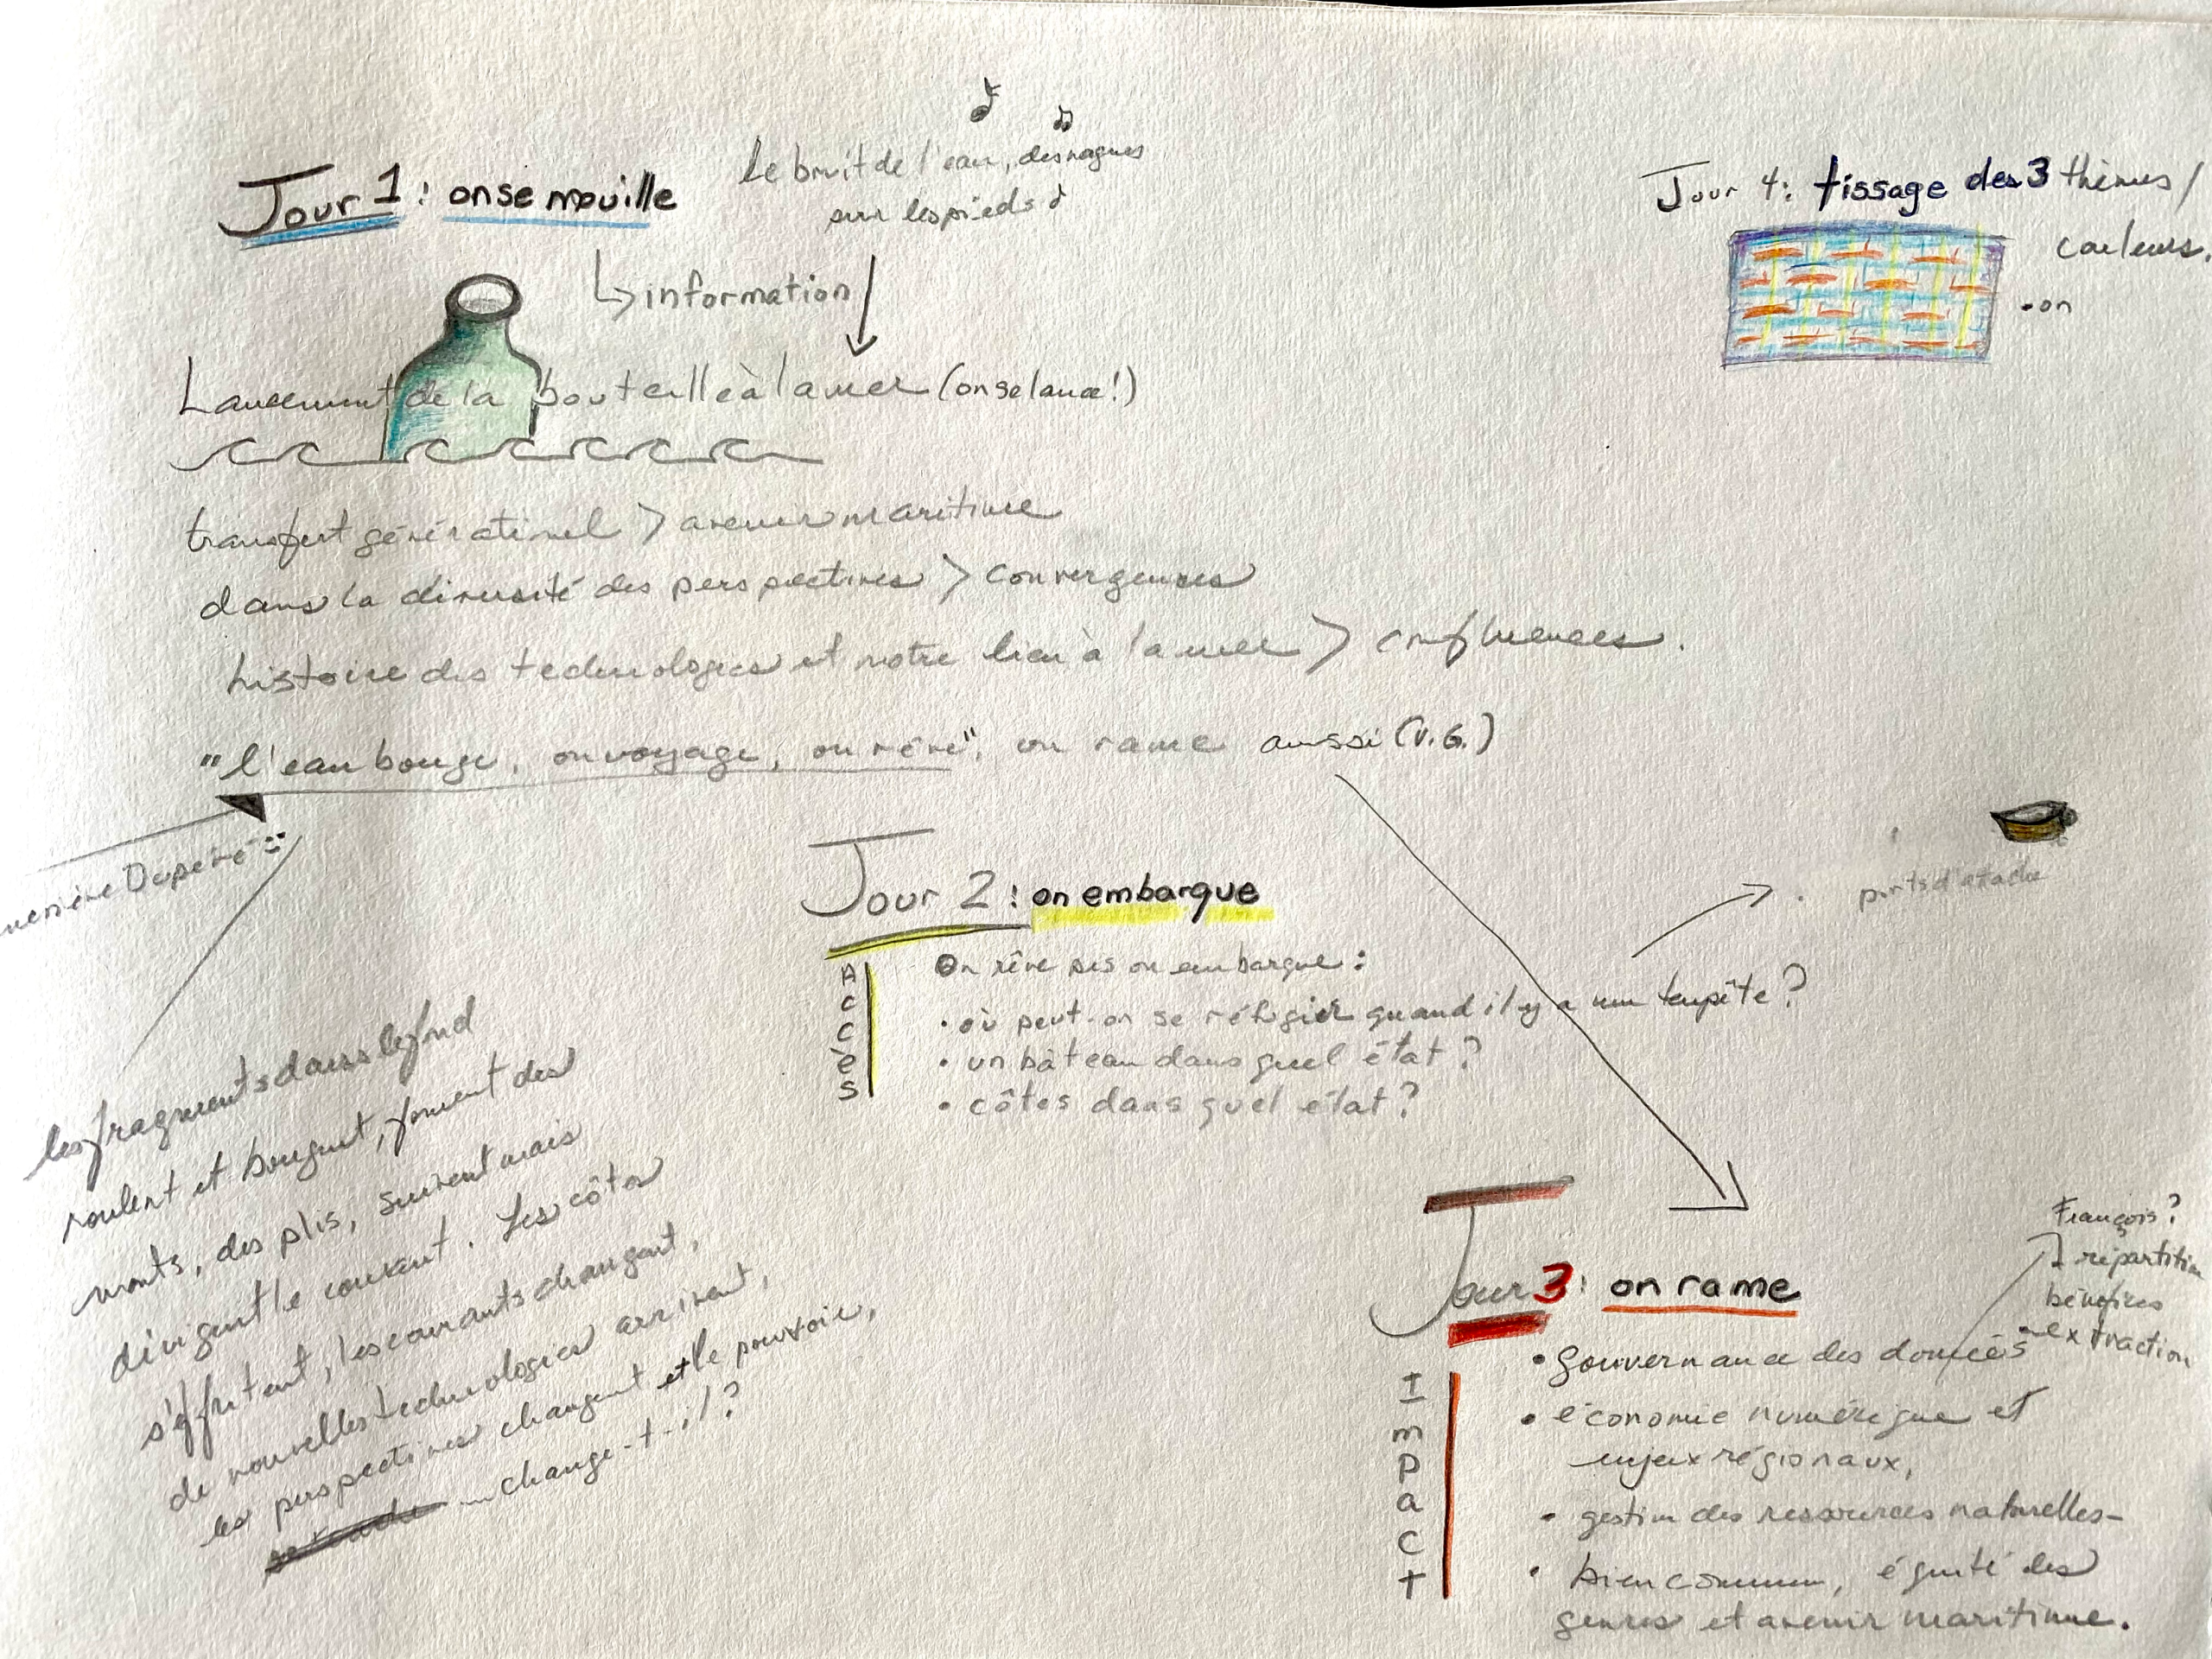 Jour 1 : on se mouille
Le bruit de l'eau, des vagues
sur les pieds
↳ information
Lancement de la bouteille à la mer (on se lance!)
transfert générationnel > avenir maritime
dans la diversité des perspectives > convergences
histoire des technologies et notre lien à la mer > confluences.
"l'eau bouge, on voyage, on rêve", on rame aussi (V.G.)
Dupéré :
les fragments dans le fond
roulent et bougent, forment des
monts, des plis, suivent mais
dirigent le courant. Les côtes
s'effritent, les courants changent,
de nouvelles technologies arrivent,
les perspectives changent et le pouvoir,
... change-t-il?
Jour 2 : on embarque
Accès
On rêve pis on embarque :
• où peut-on se réfugier quand il y a une tempête?
• un bâteau dans quel état?
• côtes dans quel état?
ports d'atache
Jour 3 : on rame
Impact
• gouvernance des données
• économie numérique et
enjeux régionaux,
• gestion des ressources naturelles-
• bien commun, équité des
genres et avenir maritime.
François?
répartition
bénéfices
extraction
Jour 4 : tissage des 3 thèmes /
couleurs.
• on